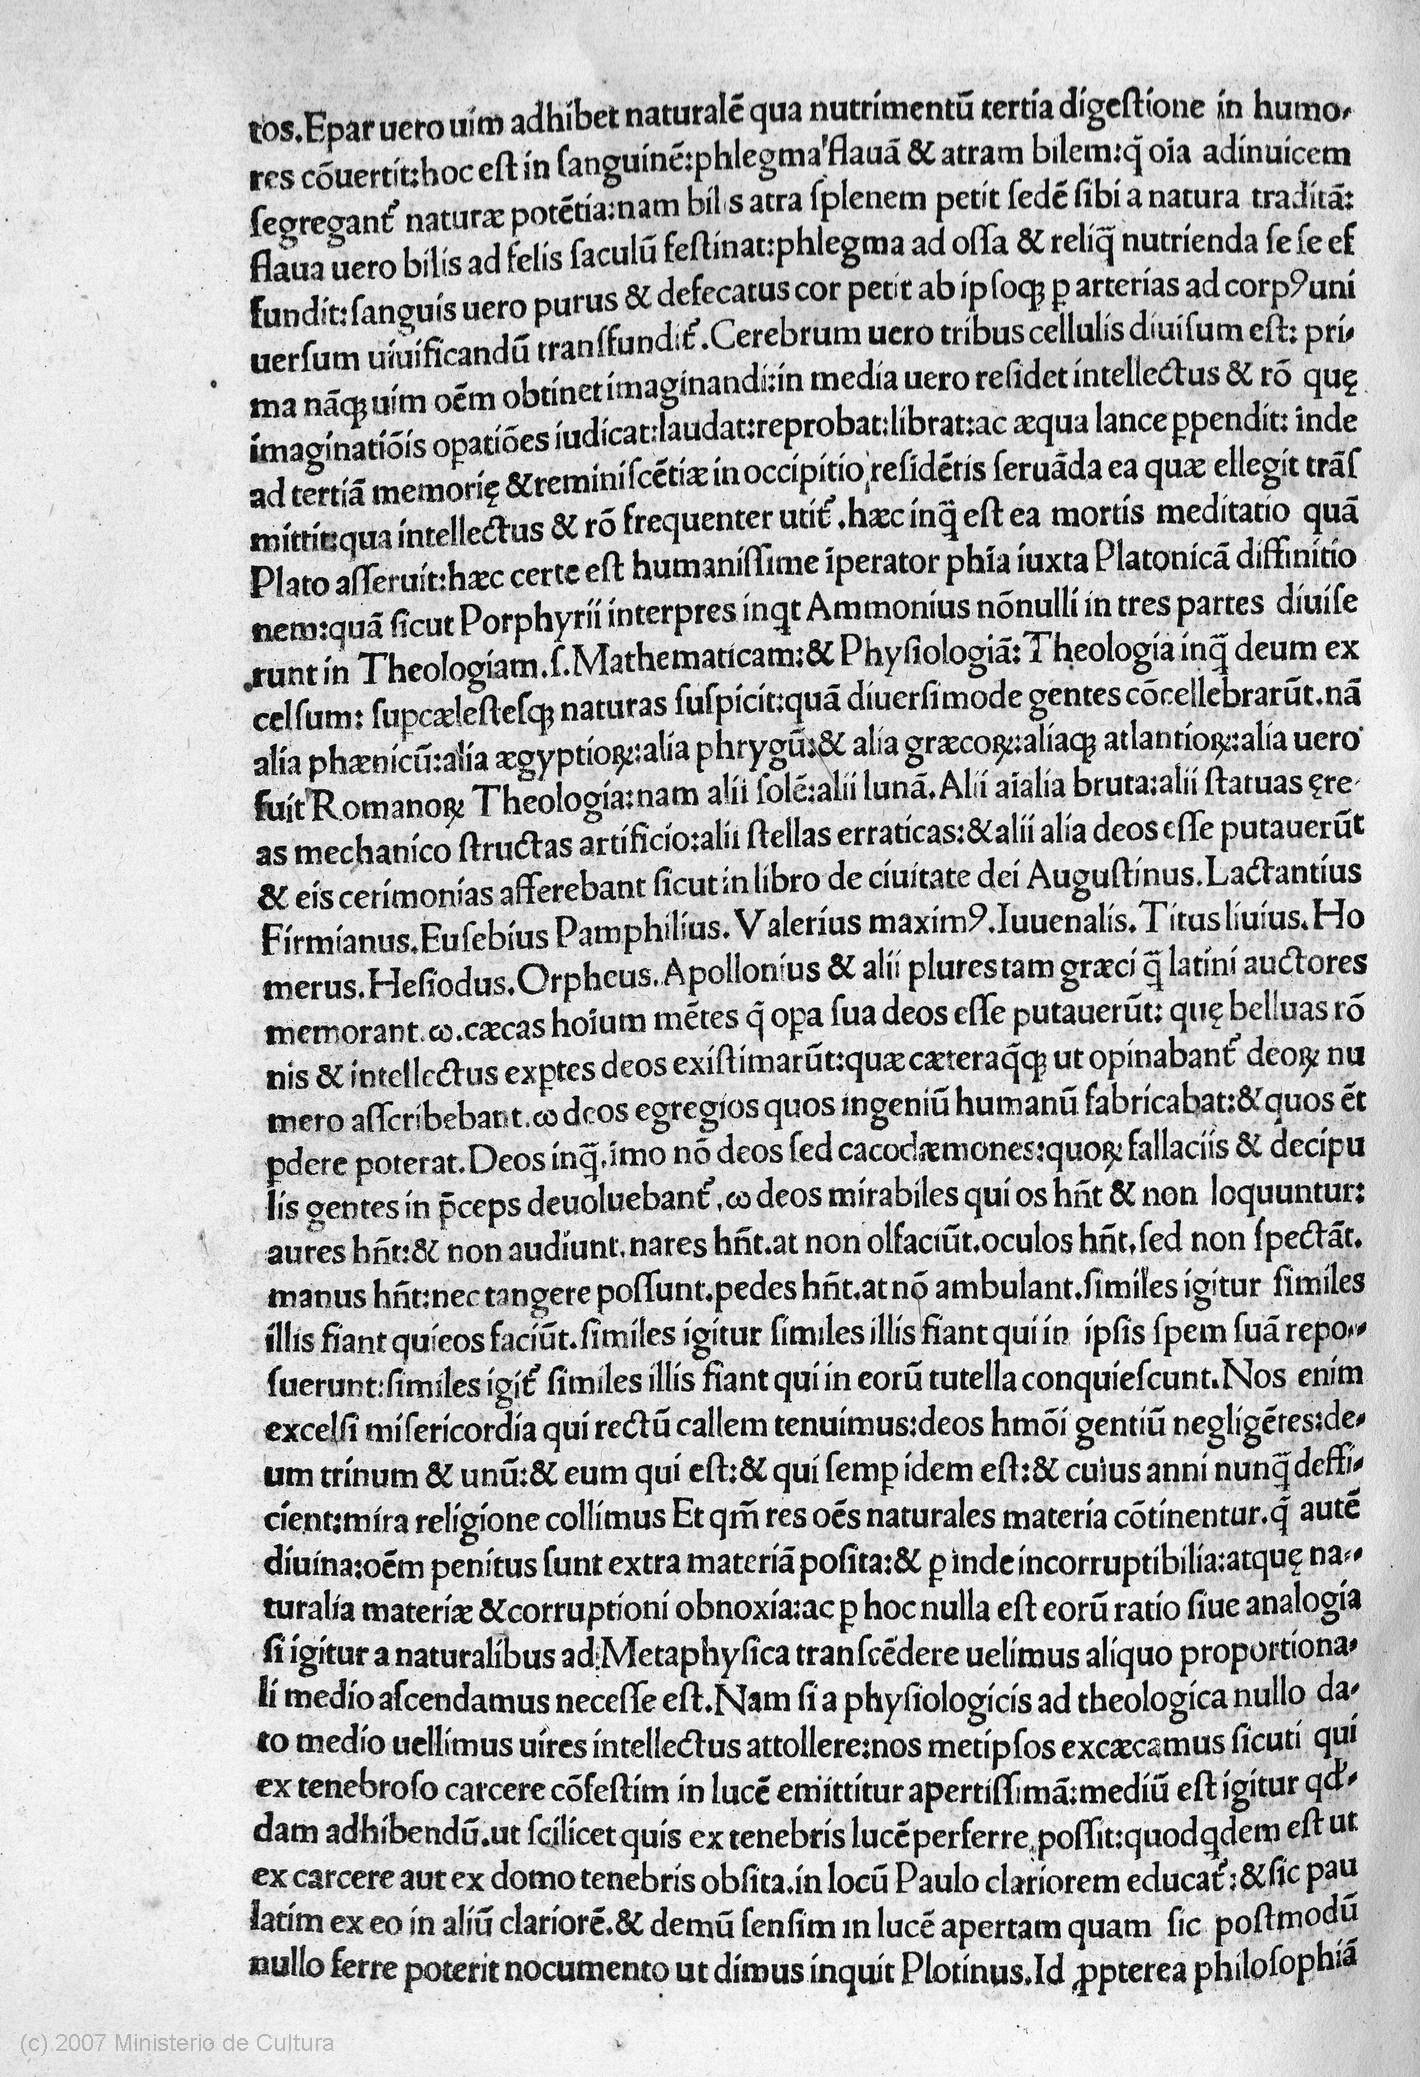 tos.Epar uero uim adhibet naturalē qua nutrimentū tertia digeſtione in humo-
res cōuertit:hoc eſt in ſanguinē:phlegma flauā & atram bilem:q̄ oīa adinuicem
ſegregant᷑ naturæ potētia:nam bilis atra ſplenem petit ſedē ſibi a natura traditā:
flaua uero bilis ad felis ſaculū feſtinat:phlegma ad oſſa & reliq̄ nutrienda ſe ſe ef
fundit:ſanguis uero purus & defecatus cor petit ab ipſoqꝫ ꝑ arterias ad corpꝰuni
uerſum uiuificandū tranſfundit᷑.Cerebrum uero tribus cellulis diuiſum eſt: pri-
ma nāqꝫ uim oēm obtinet imaginandi:in media uero reſidet intellectus & rō quę
imaginatiōis oꝑatiōes iudicat:laudat:reprobat:librat:ac æqua lance ꝑpendit: inde
ad tertiā memorię & reminiſcētiæ in occipitio reſidētis ſeruāda ea quæ ellegit trāſ
mittit:qua intellectus & rō frequenter utit᷑.hæc inq̄ eſt ea mortis meditatio quā
Plato aſſeruit:hæc certe eſt humaniſſime īperator phīa iuxta Platonicā diffinitio
nem:quā ſicut Porphyrii interpres inqt Ammonius nōnulli in tres partes diuiſe
runt in Theologiam.ſ.Mathematicam:& Phyſiologiā:Theologia inq̄ deum ex
celſum: ſuꝑcæleſteſqꝫ naturas ſuſpicit:quā diuerſimode gentes cōcellebrarūt.nā
alia phænicū:alia ægyptioꝝ:alia phrygū:& alia græcoꝝ:aliaqꝫ atlantioꝝ:alia uero
fuit Romanoꝝ Theologia:nam alii ſolē:alii lunā.Alii aīalia bruta:alii ſtatuas ęre-
as mechanico ſtructas artificio:alii ſtellas erraticas:& alii alia deos eſſe putauerūt
& eis cerimonias afferebant ſicut in libro de ciuitate dei Auguſtinus.Lactantius
Firmianus.Euſebius Pamphilius. Valerius maximꝰ.Iuuenalis. Titus liuius.Ho
merus.Heſiodus.Orpheus.Apollonius & alii plures tam græci q̄ latini auctores
memorant.ω.cæcas hoīum mētes q̄ oꝑa ſua deos eſſe putauerūt: quę belluas rō
nis & intellectus exꝑtes deos exiſtimarūt:quæ cæteraq̄qꝫ ut opinabant᷑ deoꝝ nu
mero aſſcribebant.ω deos egregios quos ingeniū humanū fabricabat:& quos ēt
ꝑdere poterat.Deos inq̄.īmo nō deos ſed cacodæmones:quoꝝ fallaciis & decipu
lis gentes in p̄ceps deuoluebant᷑.ω deos mirabiles qui os hn̄t & non loquuntur:
aures hn̄t:& non audiunt.nares hn̄t.at non olfaciūt.oculos hn̄t.ſed non ſpectāt.
manus hn̄t:nec tangere poſſunt.pedes hn̄t.at nō ambulant.ſimiles igitur ſimiles
illis fiant qui eos faciūt.ſimiles igitur ſimiles illis fiant qui in ipſis ſpem ſuā repo-
ſuerunt:ſimiles igit᷑ ſimiles illis fiant qui in eorū tutella conquieſcunt.Nos enim
excelſi miſericordia qui rectū callem tenuimus:deos hmōi gentiū negligētes:de-
um trinum & unū:& eum qui eſt:& qui ſemꝑ idem eſt:& cuius anni nunq̄ deffi-
cient:mira religione collimus Et qm̄ res oēs naturales materia cōtinentur.q̄ autē
diuina:oēm penitus ſunt extra materiā poſita:& ꝑ inde incorruptibilia:atquę na-
turalia materiæ & corruptioni obnoxia:ac ꝑ hoc nulla eſt eorū ratio ſiue analogia
ſi igitur a naturalibus ad Metaphyſica tranſcēdere uelimus aliquo proportiona-
li medio aſcendamus neceſſe eſt.Nam ſi a phyſiologicis ad theologica nullo da-
to medio uellimus uires intellectus attollere:nos metipſos excæcamus ſicuti qui
ex tenebroſo carcere cōfeſtim in lucē emittitur apertiſſimā:mediū eſt igitur qd̓-
dam adhibendū.ut ſcilicet quis ex tenebris lucē perferre poſſit:quod qdem eſt ut
ex carcere aut ex domo tenebris obſita.in locū Paulo clariorem educat᷑:& ſic pau
latim ex eo in aliū clariorē.& demū ſenſim in lucē apertam quam ſic poſtmodū
nullo ferre poterit nocumento ut dimus inquit Plotinus.Id ꝓpterea philoſophiā
(c) 2007 Ministerio de Cultura